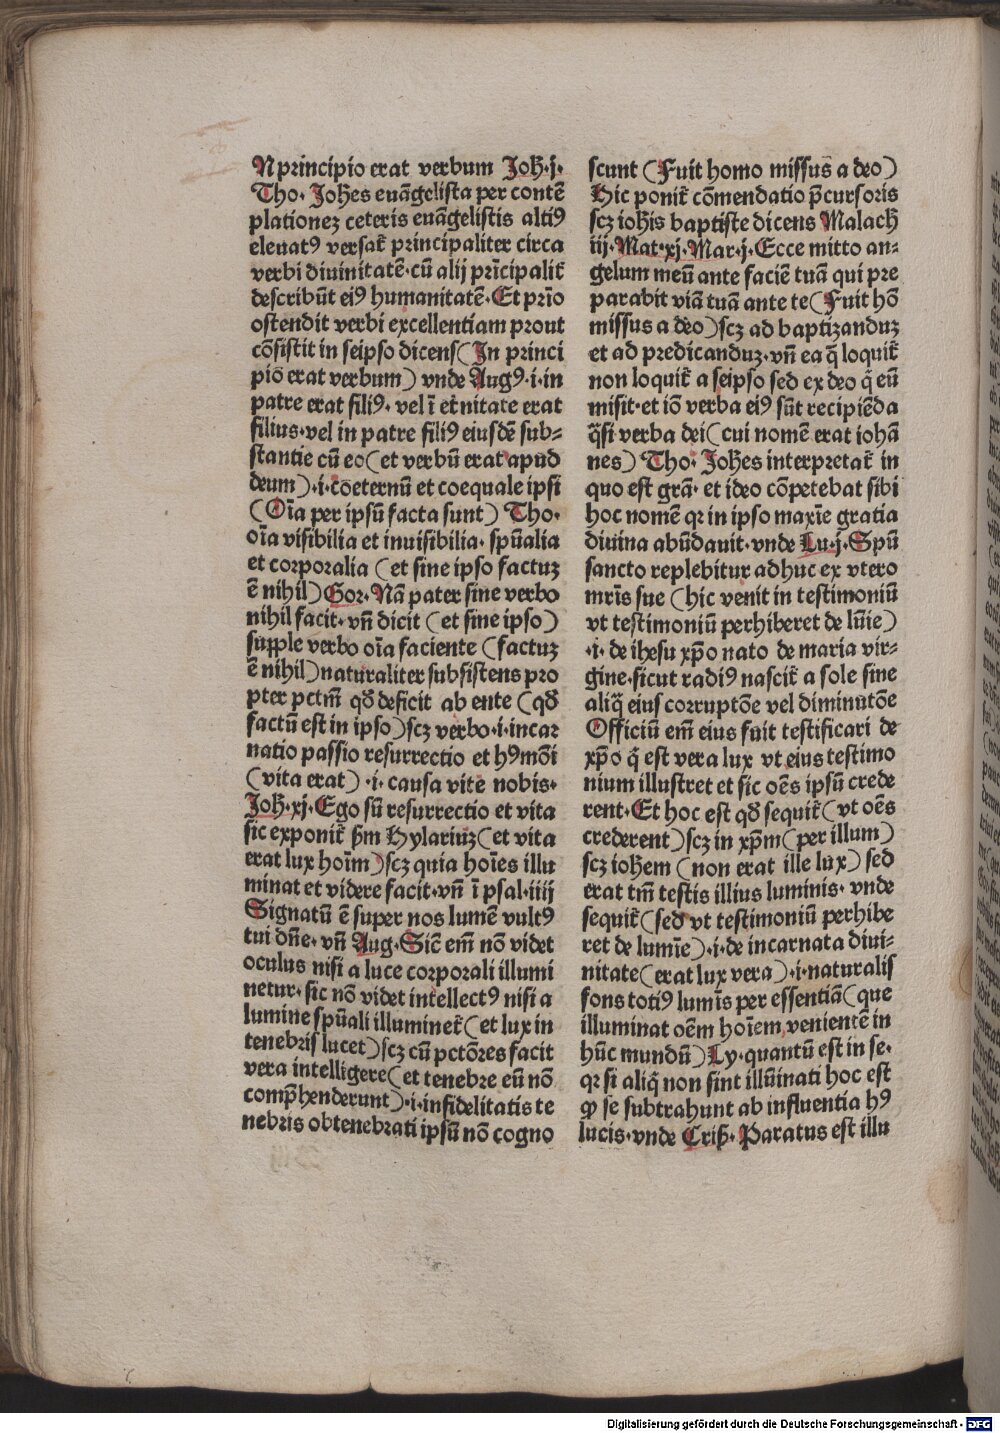 N principio erat verbum Joh·j·
Tho· Johes euāgelista per contē
plationez ceteris euāgelistis altiꝰ
eleuatꝰ versat᷑ principaliter circa
verbi diuinitatē·cū alij prīcipalit᷑
describūt eiꝰ humanitatē·Et prīo
ostendit verbi excellentiam prout
cōsistit in seipso dicens(In princi
piō erat verbum) vnde Augꝰ·i·in
patre erat filiꝰ· vel ī et᷑nitate erat
filius·vel in patre filiꝰ eiusdē sub⸗
stantie cū eo(et verbū erat apud
deum)·i·coeternū et coequale ipsi
(Oīa per ipsū facta sunt) Tho·
oīa visibilia et inuisibilia· spūalia
et corporalia (et sine ipso factuz
ē nihil)Gor·Nā pater sine verbo
nihil facit·vn̄ dicit (et sine ipso)
supple verbo oīa faciente (factuz
ē nihil)naturaliter subsistens pro
pter pctm̄ qd̄ deficit ab ente (qd̄
factū est in ipso)scz verbo·i·incar
natio passio resurrectio et hꝰmōi
(vita erat) ·i· causa vite nobis·
Joh·xj·Ego sū resurrectio et vita
sic exponit᷑ ẜm Hylariuz(et vita
erat lux hoīm)scz quia hoīes illu
minat et videre facit·vn̄ ī psal·iiij
Signatū ē super nos lumē vultꝰ
tui dn̄e·vn̄ Aug·Sic̄ em̄ nō videt
oculus nisi a luce corporali illumi
netur·sic nō videt intellectꝰ nisi a
lumine spūali illuminet᷑(et lux in
tenebris lucet)scz cū pctōres facit
vera intelligere(et tenebre eū nō
comp̄henderunt)·i·infidelitatis te
nebris obtenebrati ipsū nō cogno
scunt (Fuit homo missus a deo)
Hic ponit᷑ cōmendatio p̄cursoris
scz iohis baptiste dicens Malach
iij·Mat·xj·Mar·j·Ecce mitto an⸗
gelum meū ante faciē tuā qui pre
parabit viā tuā ante te(Fuit hō
missus a deo)scz ad baptizanduz
et ad predicanduz·vn̄ ea q̄ loquit᷑
non loquit᷑ a seipso sed ex deo q̄ eū
misit·et iō verba eiꝰ sūt recipiēda
q̄si verba dei(cui nomē erat iohā
nes) Tho· Johes interpretat᷑ in
quo est grā· et ideo cōpetebat sibi
hoc nomē qꝛ in ipso maxīe gratia
diuina abūdauit·vnde Lu·j·Spū
sancto replebitur adhuc ex vtero
mr̄is sue (hic venit in testimoniū
vt testimoniū perhiberet de lūīe)
·i· de ihesu xp̄o nato de maria vir⸗
gine·sicut radiꝰ nascit᷑ a sole sine
aliq̄ eius corruptōe vel diminutōe
Officiū em̄ eius fuit testificari de
xp̄o q̄ est vera lux vt eius testimo
nium illustret et sic oēs ipsū crede
rent·Et hoc est qd̄ sequit᷑(vt oēs
crederent)scz in xp̄m(per illum)
scz iohem (non erat ille lux) sed
erat tm̄ testis illius luminis· vnde
sequit᷑(sed vt testimoniū perhibe
ret de lumīe)·i·de incarnata diui⸗
nitate(erat lux vera)·i·naturalis
fons totiꝰ lumīs per essentiā(que
illuminat oēm hoīem venientē in
hūc mundū)Ly·quantū est in se·
qꝛ si aliq̄ non sint illūinati hoc est
ꝙ se subtrahunt ab influentia hꝰ
lucis·vnde Criß·Paratus est illu
Digitalisierung gefördert durch die Deutsche Forschungsgemeinschaft - DFG